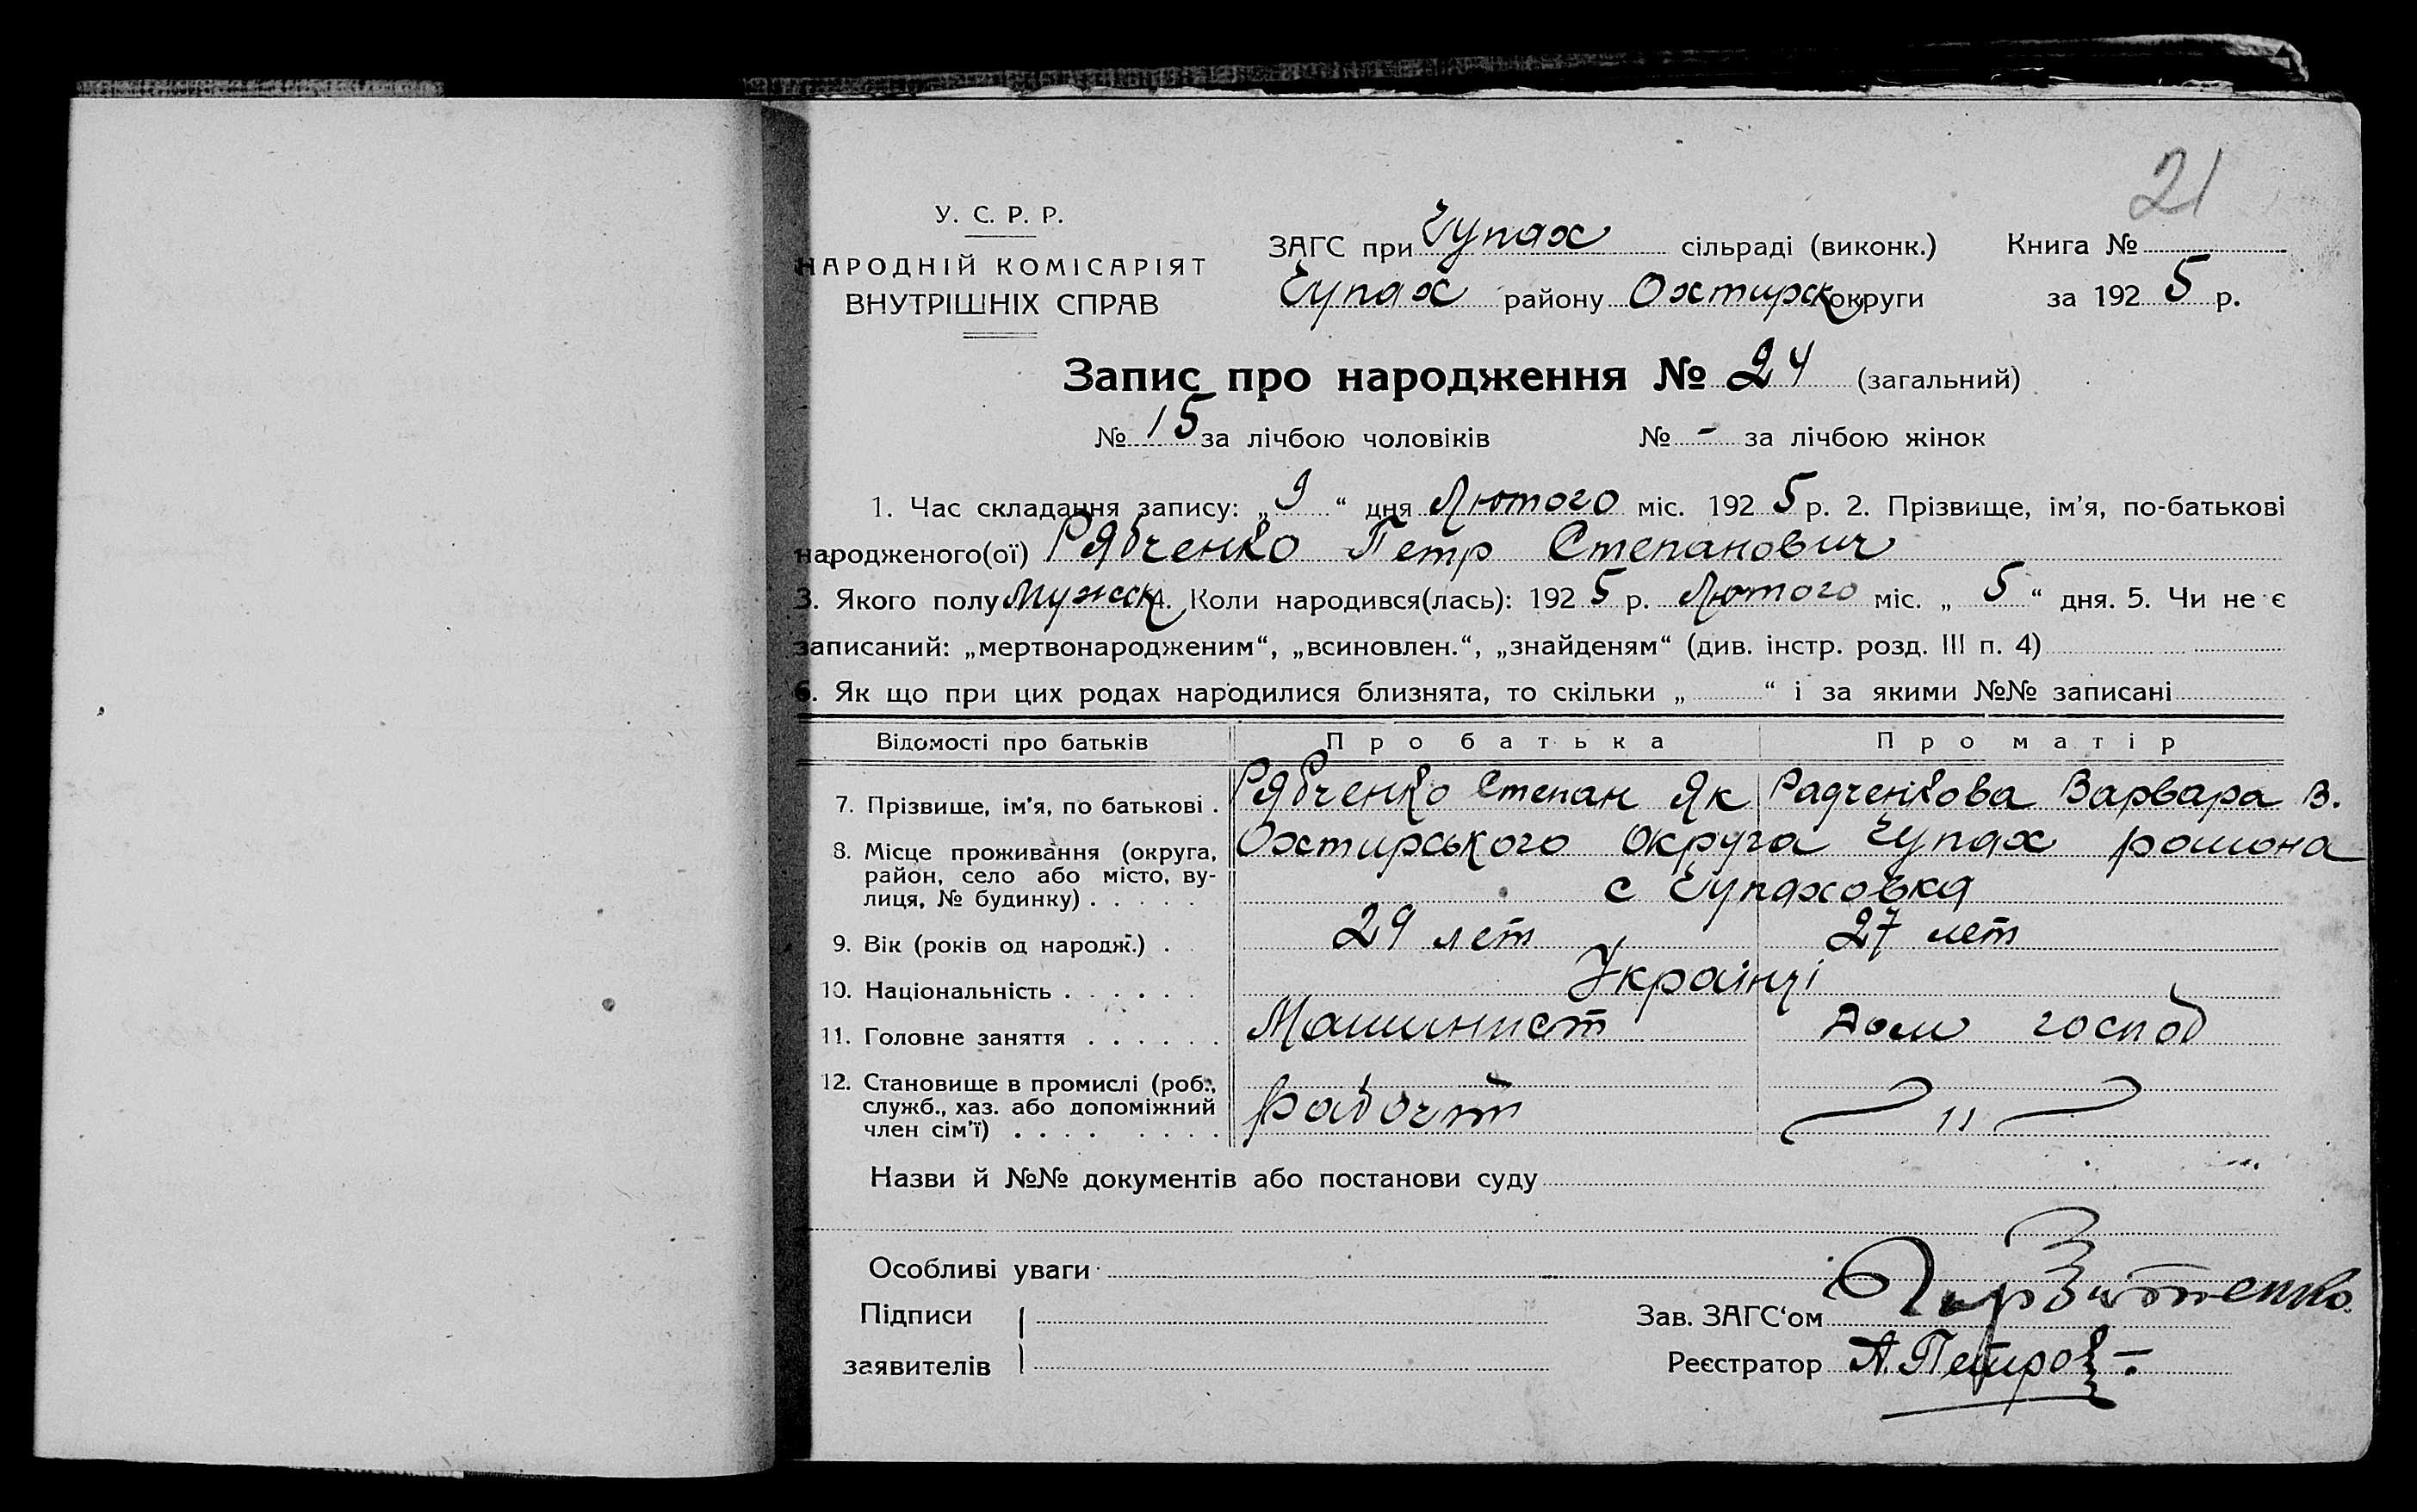 21
У. С. Р. Р.
НАРОДНІЙ КОМІСАРІЯТ
ВНУТРІШНІХ СПРАВ
ЗАГС при Чупах сільраді (виконк.) Книга №
Чупах району Охтирск округи за 192 5 р.
Запис про народження № 24 (загальний)
№ 15 за лічбою чоловіків № - за лічбою жінок
1. Час складання запису: „ 9 “ дня Лютого міс. 192 5 р. 2. Прізвище, ім'я, по-батькові
народженого(ої) Рябченко Петр Степанович
3. Якого полу Мужск 4. Коли народився(лась): 192 5 р. Лютого міс. „ 5 “ дня. 5. Чи не є
записаний: „мертвонародженим“, „всиновлен.“, „знайденям“ (див. інстр. розд. III п. 4)
6. Як що при цих родах народилися близнята, то скільки „ “ і за якими №№ записані
Відомості про батьків Про батька Про матір
7. Прізвище, ім'я, по батькові . Рябченко Степан Як Радченкова Варвара В.
8. Місце проживання (округа, район, село або місто, вулиця, № будинку) . . . . . Охтирського Округа Чупах району
с Чупаховка
9. Вік (років од народж.) . 29 лет 27 лет
10. Національність . . . . . . Українці
11. Головне заняття . . . . . . Машинист Дом господ
12. Становище в промислі (роб., служб., хаз. або допоміжний член сім'ї) . . . . . . . . Рабоч - " -
Назви й №№ документів або постанови суду
Особливі уваги
Підписи
заявителів
Зав. ЗАГС‘ом
Реєстратор А. Петров